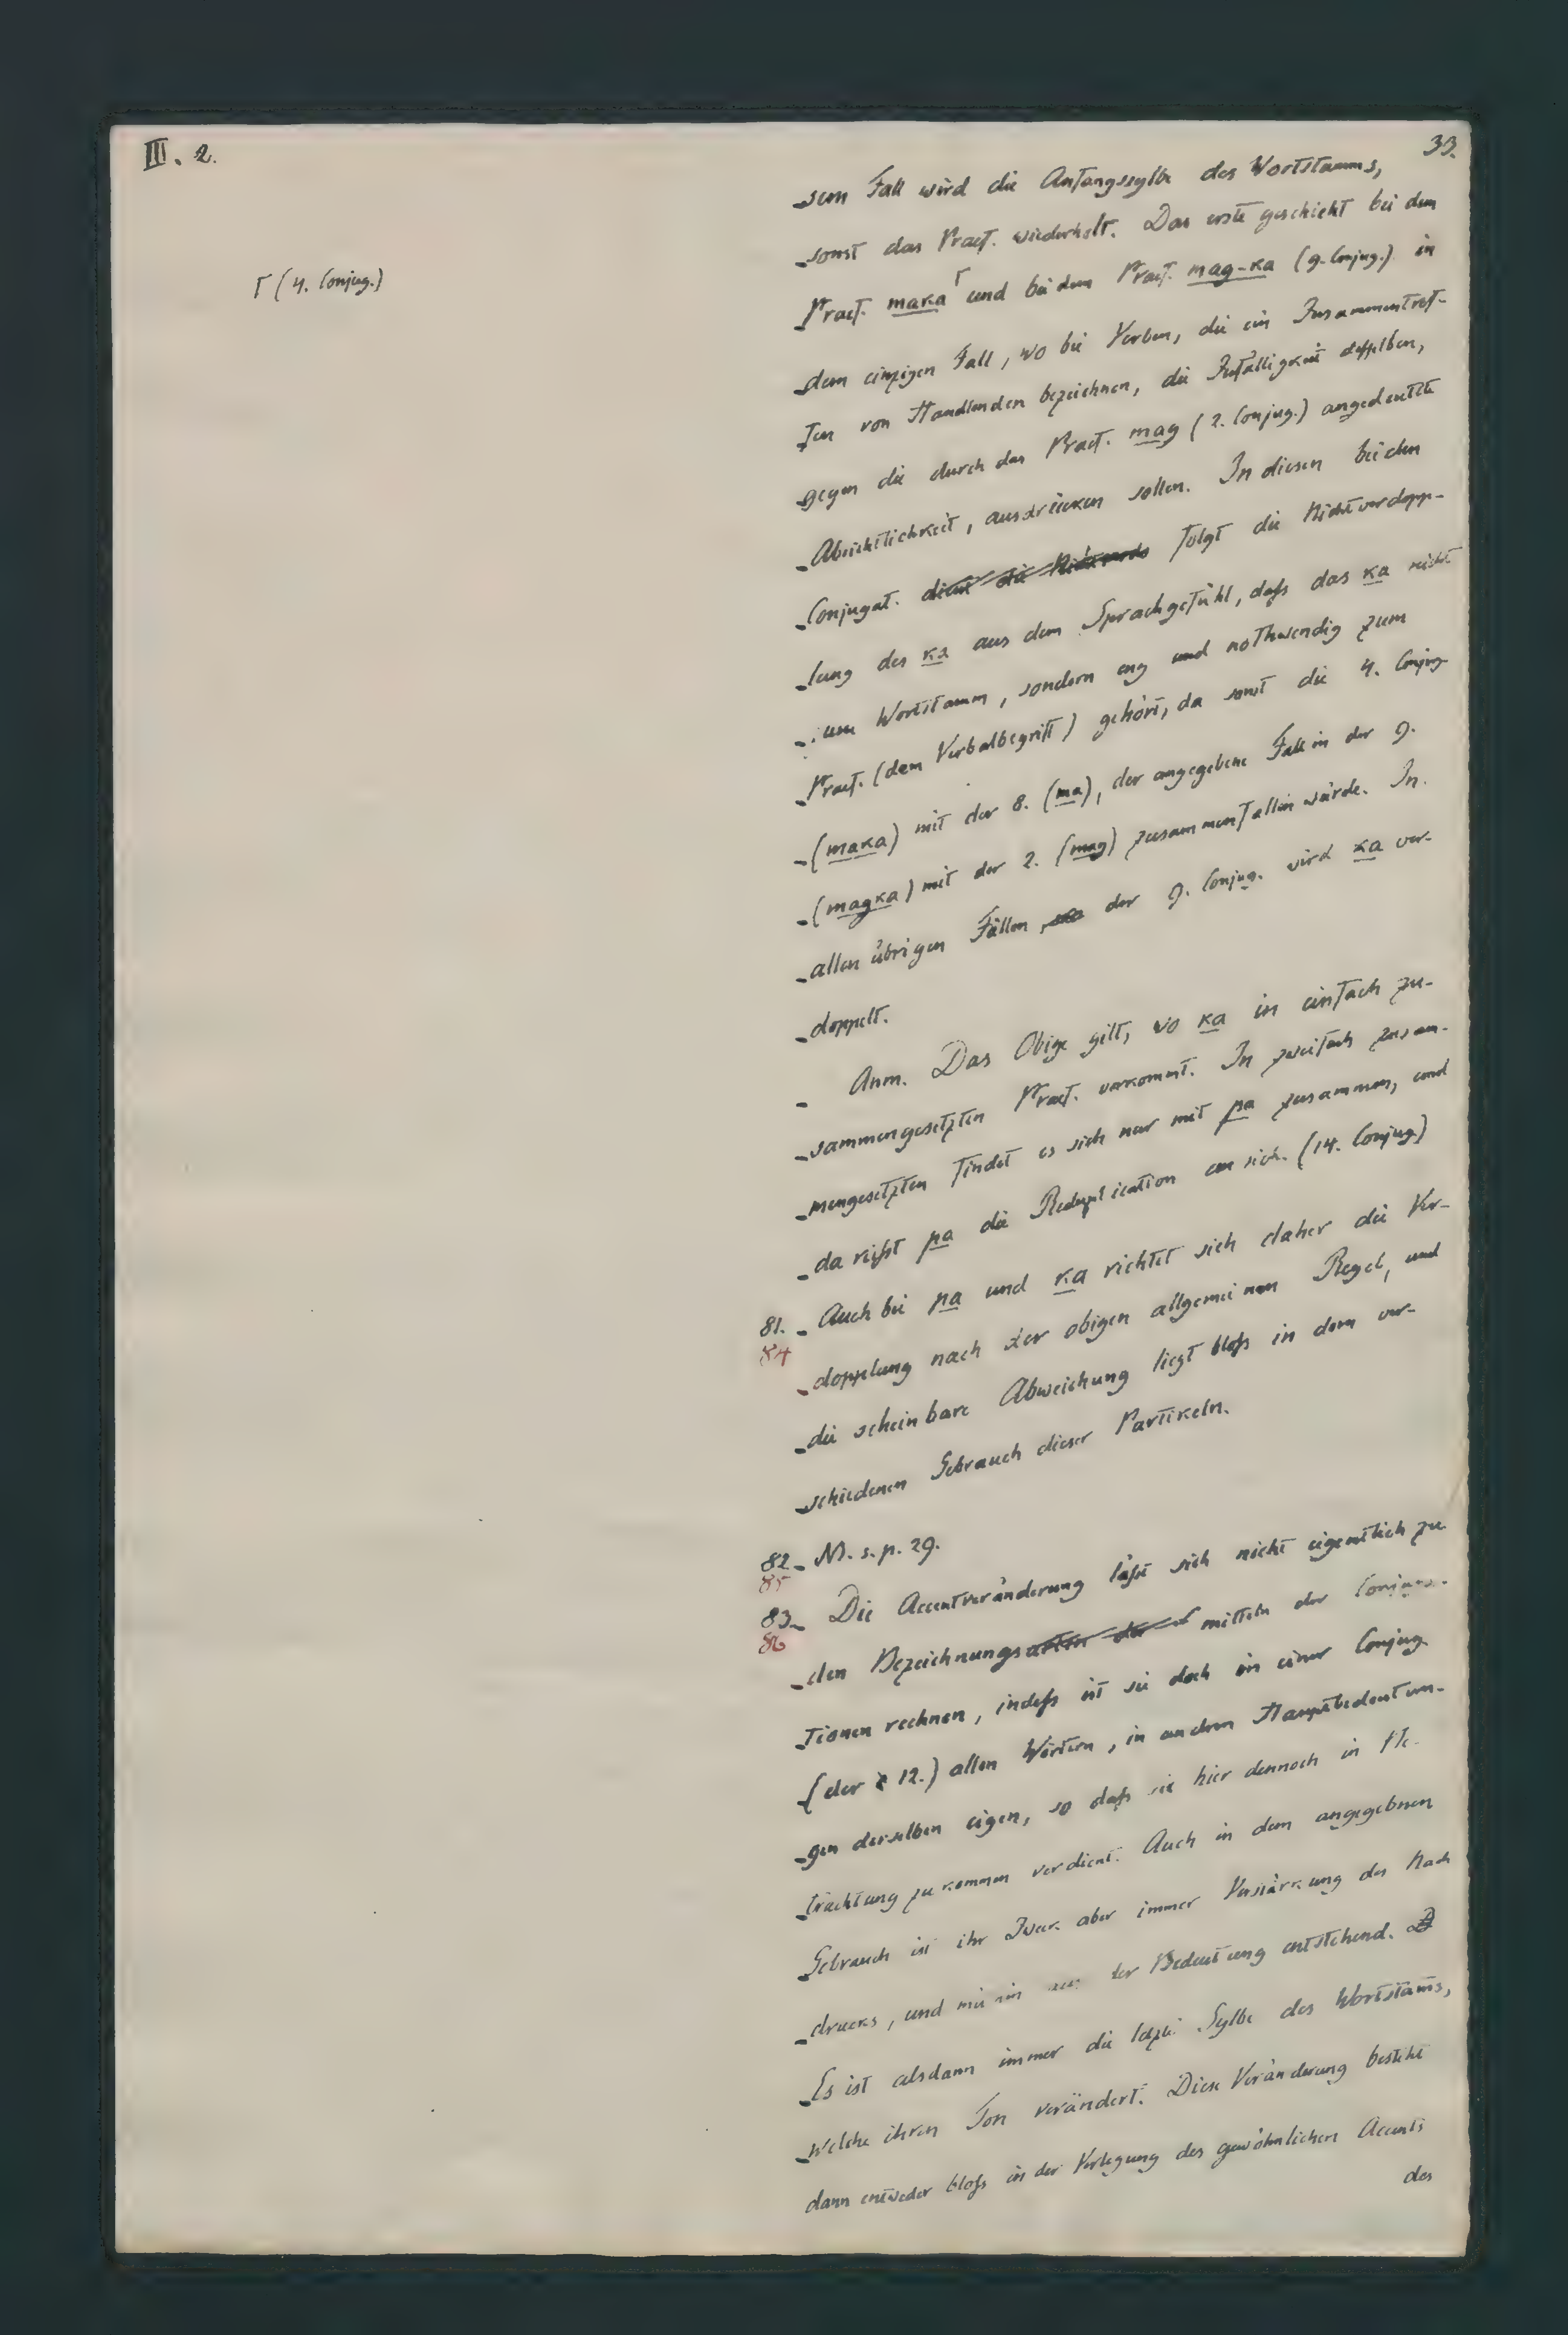 III. 2.
33.
⌈ (4. Conjug.)
sem Fall wird die Anfangssylbe des Wortstamms,
sonst das Praef. wiederholt. Das erste geschieht bei dem
Praef. maka ⌈ und bei dem Praef. mag-ka (9. Conjug.) in
dem einzigen Fall, wo bei Verben, die ein Zusammentref-
fen von Handlenden bezeichnen, die Zufälligkeit desselben,
gegen die durch das Praef. mag (2. Conjug.) angedeutete
Absichtlichkeit, ausdrücken sollen. In diesen beiden
Conjugat. folgt die Nichtverdopp-
lung des ka aus dem Sprachgefühl, daß das ka nicht
zum Wortstamm, sondern eng und nothwendig zum
Praef. (dem Verbalbegriff) gehört, da sonst die 4. Conjug.
(maka) mit der 8. (ma), der angegebene Fall in der 9.
(magka) mit der 2. (mag) zusammenfallen würde. In
allen übrigen Fällen der 9. Conjug. wird ka ver-
doppelt.
Anm. Das Obige gilt, wo ka in einfach zu-
sammengesetzten Praef. vorkommt. In zweifach zusam-
mengesetzten findet es sich nur mit pa zusammen, und
da reißt pa die Reduplication an sich. (14. Conjug.)
81. Auch bei pa und ka richtet sich daher die Ver-
84
doppelung nach der obigen allgemeinen Regel, und
die scheinbare Abweichung liegt bloß in dem ver-
schiedenen Gebrauch dieser Partikeln.
82. M. s. p. 29.
85
83. Die Accentveränderung läßt sich nicht eigentlich zu
86
den Bezeichnungsmitteln der Conjuga-
tionen rechnen, indeß ist sie doch in einer Conjug.
(der 12.) allen Wörtern, in andren Hauptbedeutun-
gen derselben eigen, so daß sie hier dennoch in Be-
trachtung zu kommen verdient. Auch in dem angegebnen
Gebrauch ist ihr Zweck aber immer Verstärkung des Nach
drucks, und mithin aus der Bedeutung entstehend.
Es ist alsdann immer die letzte Sylbe des Wortstams,
welche ihren Ton verändert. Diese Veränderung besteht
dann entweder bloß in der Verlegung des gewöhnlichen Accents
des